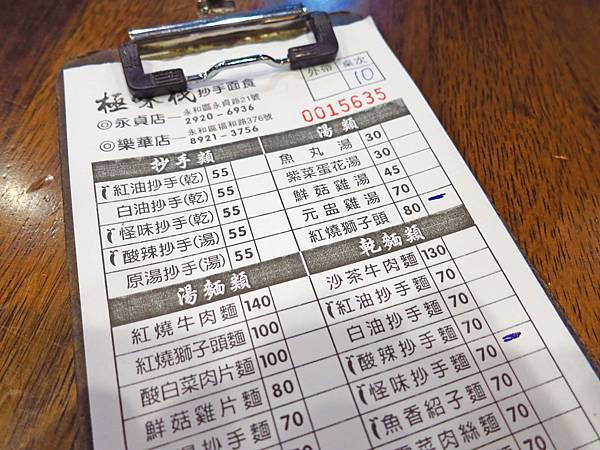 極味棧抄手麵食
◎永貞店—永和區永貞路21號
2920-6936
◎樂華店—永和區福和路376號
8921-3756
外帶 桌次
10
0015635
抄手類
紅油抄手(乾) 55
白油抄手(乾) 55
怪味抄手(乾) 55
酸辣抄手(湯) 55
原湯抄手(湯) 55
湯類
魚丸湯 30
紫菜蛋花湯 30
鮮菇雞湯 45
元盅雞湯 70
紅燒獅子頭 80
湯麵類
紅燒牛肉麵 140
紅燒獅子頭麵 100
酸白菜肉片麵 100
鮮菇雞片麵 80
湯抄手麵 70
乾麵類
沙茶牛肉麵 130
紅油抄手麵 70
白油抄手麵 70
酸辣抄手麵 70
怪味抄手麵 70
魚香紹子麵 70
菜肉絲麵 70